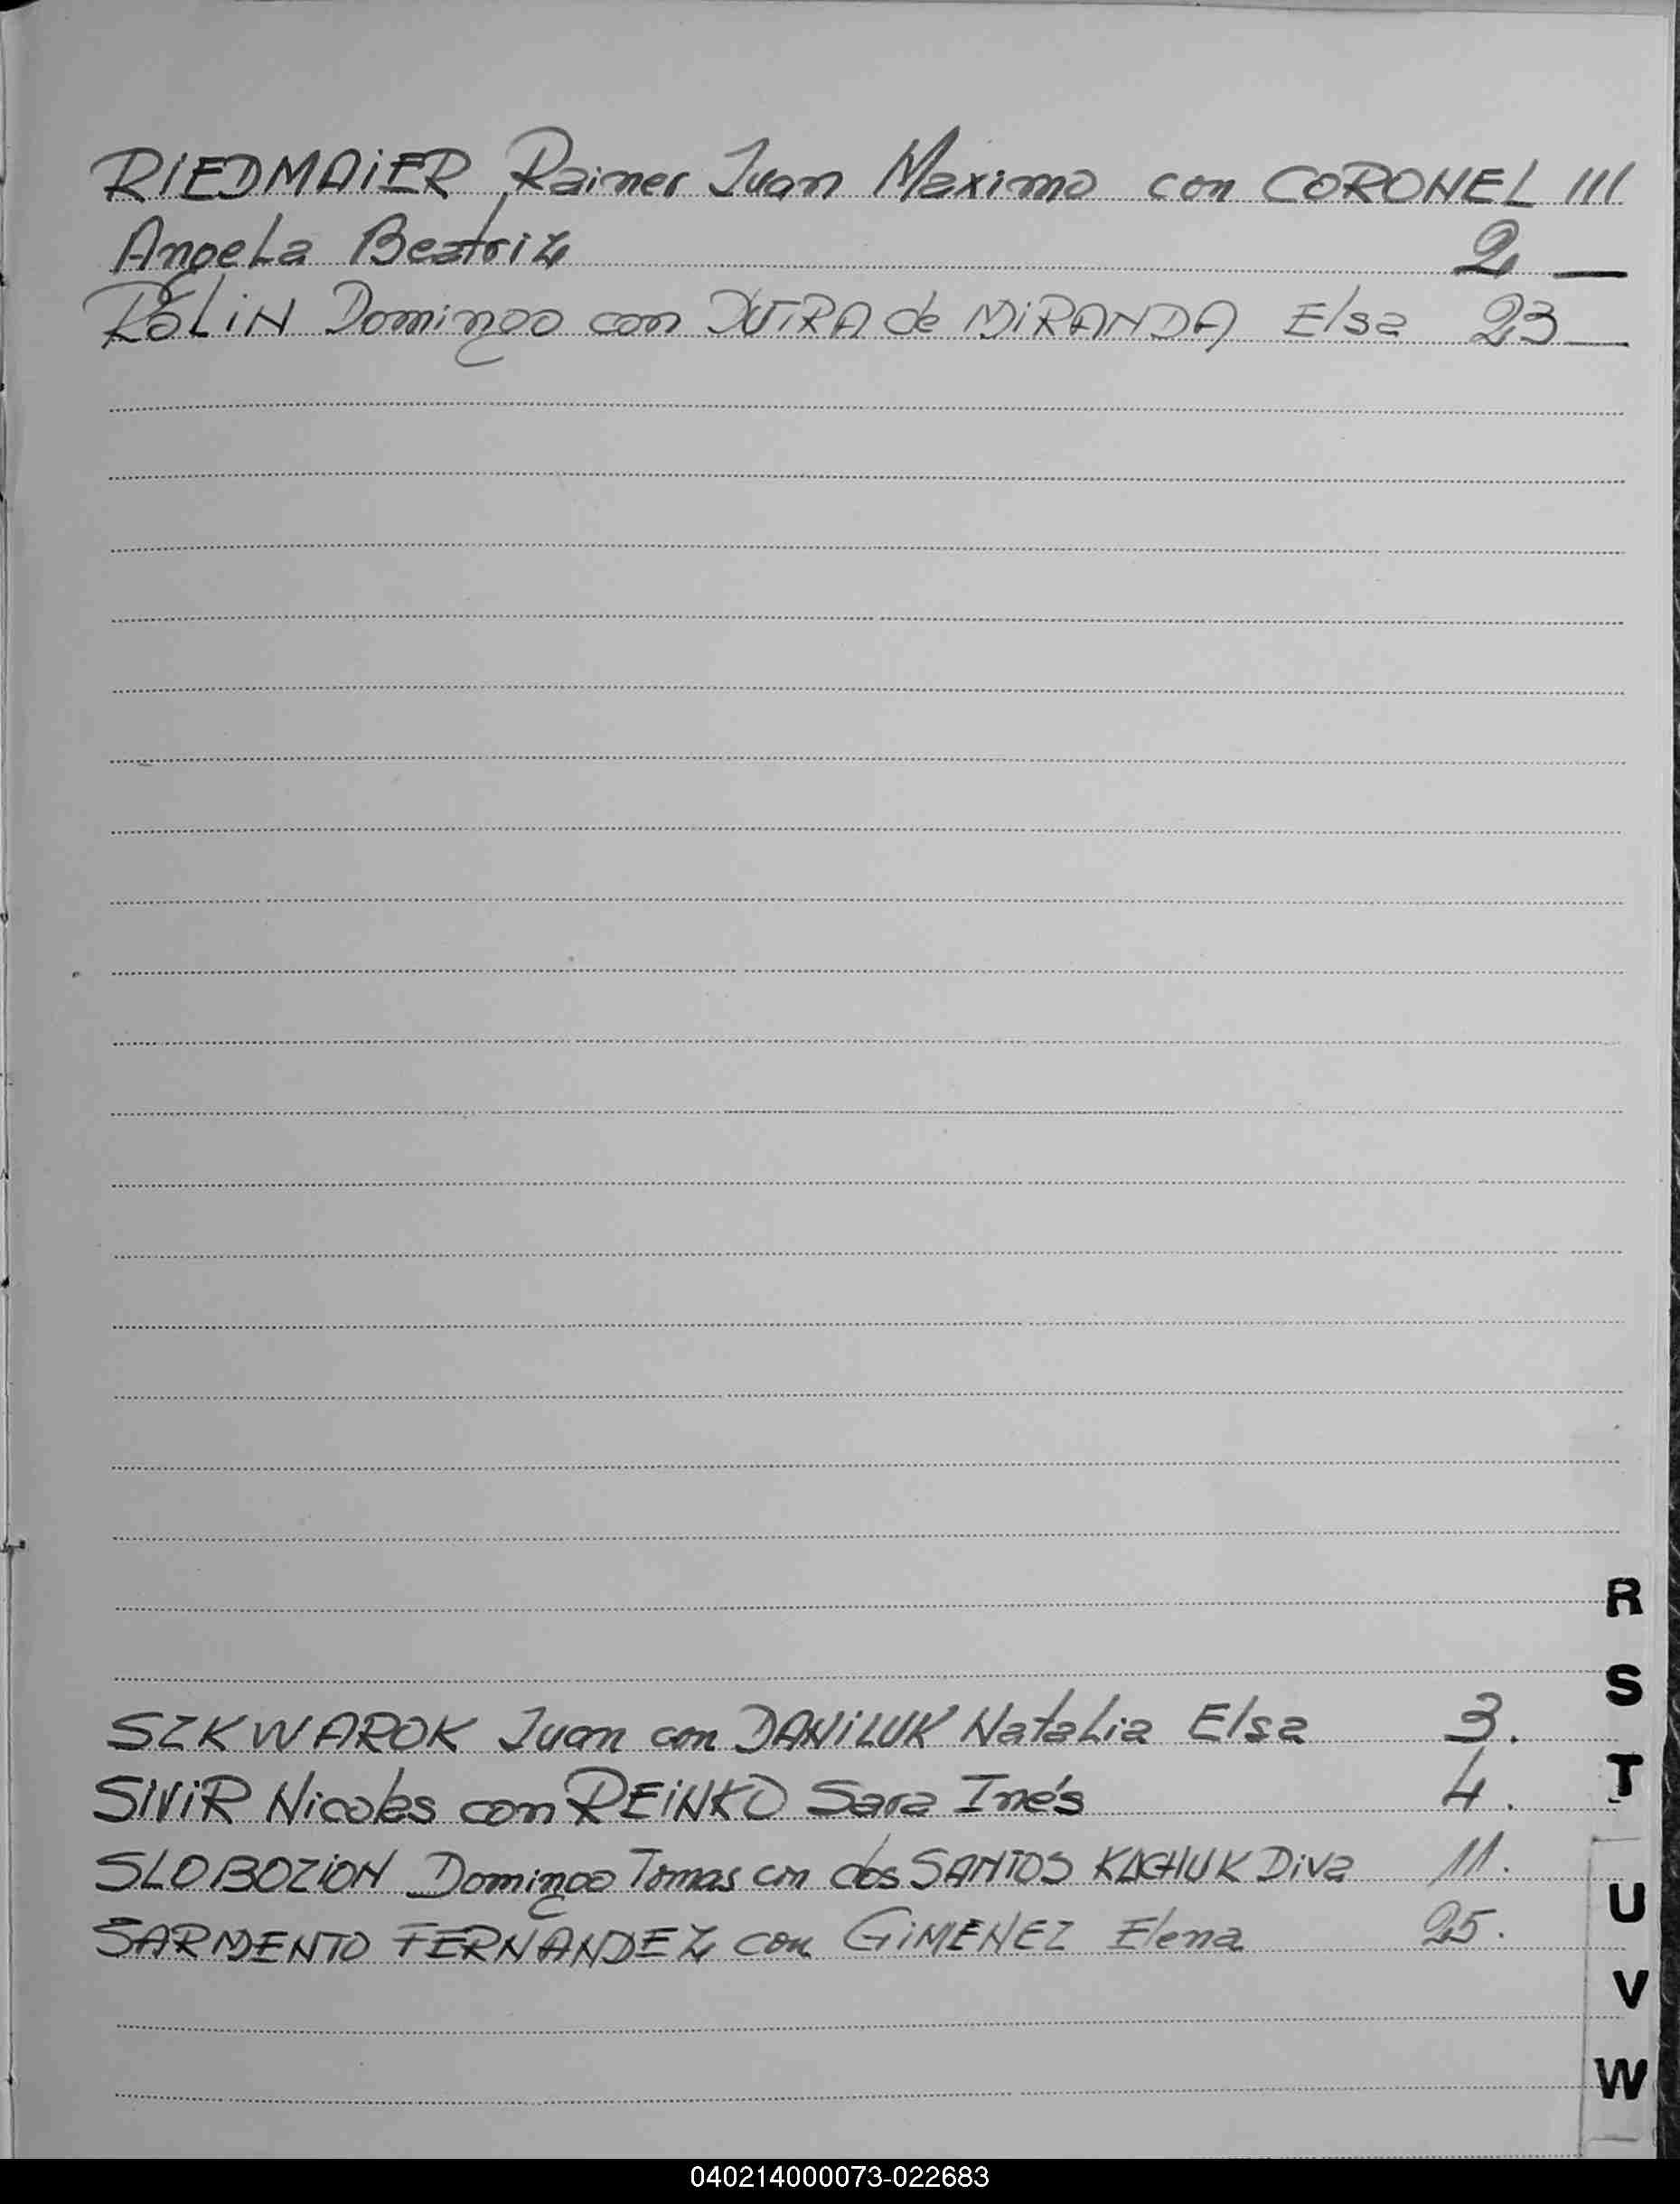 RIEDMAIER Rainer Juan Maximo con CORONEL III
Angela Beatriz 2 —
ROLIN Domingo con DUTRA de MIRANDA Elsa 23 —
R
S
SZKWAROK Juan con DANILUK Natalia Elsa 3.
T
SIVIR Nicolas con REINKO Sara Inés 4.
SLOBOZION Domingo Tomas con dos SANTOS KACHUK Diva 11.
U
SARMENTO FERNANDEZ con GIMENEZ Elena 25.
V
W
040214000073-022683